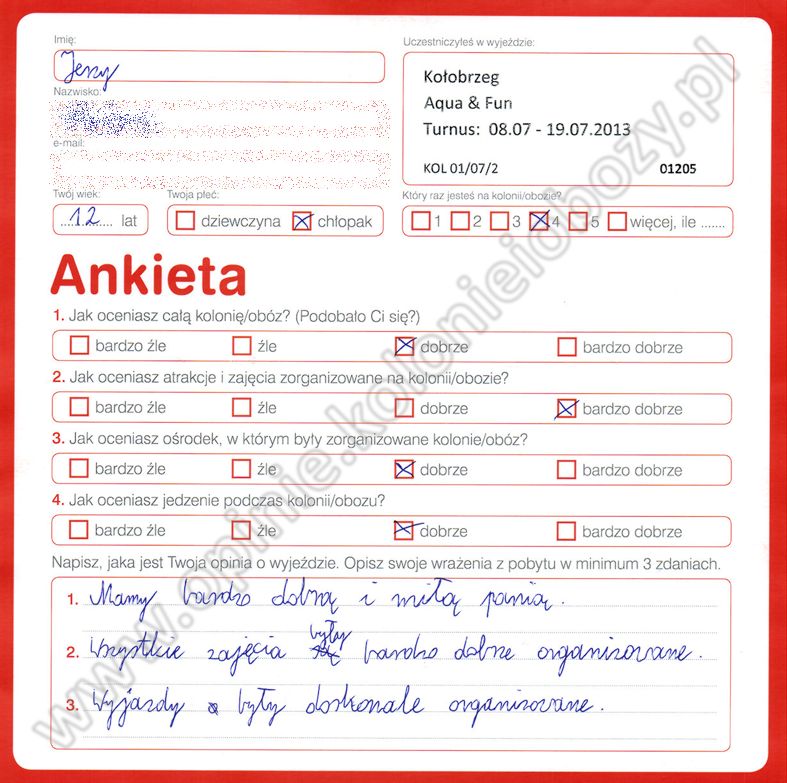 Imię:
Jerzy
Uczestniczyłeś w wyjeździe:
Kołobrzeg
Aqua & Fun
Turnus: 08.07 - 19.07.2013
KOL 01/07/2 01205
Nazwisko:
e-mail:
Twój wiek:
12 lat
Twoja płeć:
dziewczyna chłopak
Który raz jesteś na kolonii/obozie?
1 2 3 4 5 więcej, ile .......
Ankieta
1. Jak oceniasz całą kolonię/obóz? (Podobało Ci się?)
bardzo źle źle dobrze bardzo dobrze
2. Jak oceniasz atrakcje i zajęcia zorganizowane na kolonii/obozie?
bardzo źle źle dobrze bardzo dobrze
3. Jak oceniasz ośrodek, w którym były zorganizowane kolonie/obóz?
bardzo źle źle dobrze bardzo dobrze
4. Jak oceniasz jedzenie podczas kolonii/obozu?
bardzo źle źle dobrze bardzo dobrze
Napisz, jaka jest Twoja opinia o wyjeździe. Opisz swoje wrażenia z pobytu w minimum 3 zdaniach.
1. Mamy bardzo dobrą i miłą panią.
2. Wszystkie zajęcia były bardzo dobrze organizowane.
3. Wyjazdy były doskonale organizowane.
www.opinie.kolonieiobozy.pl